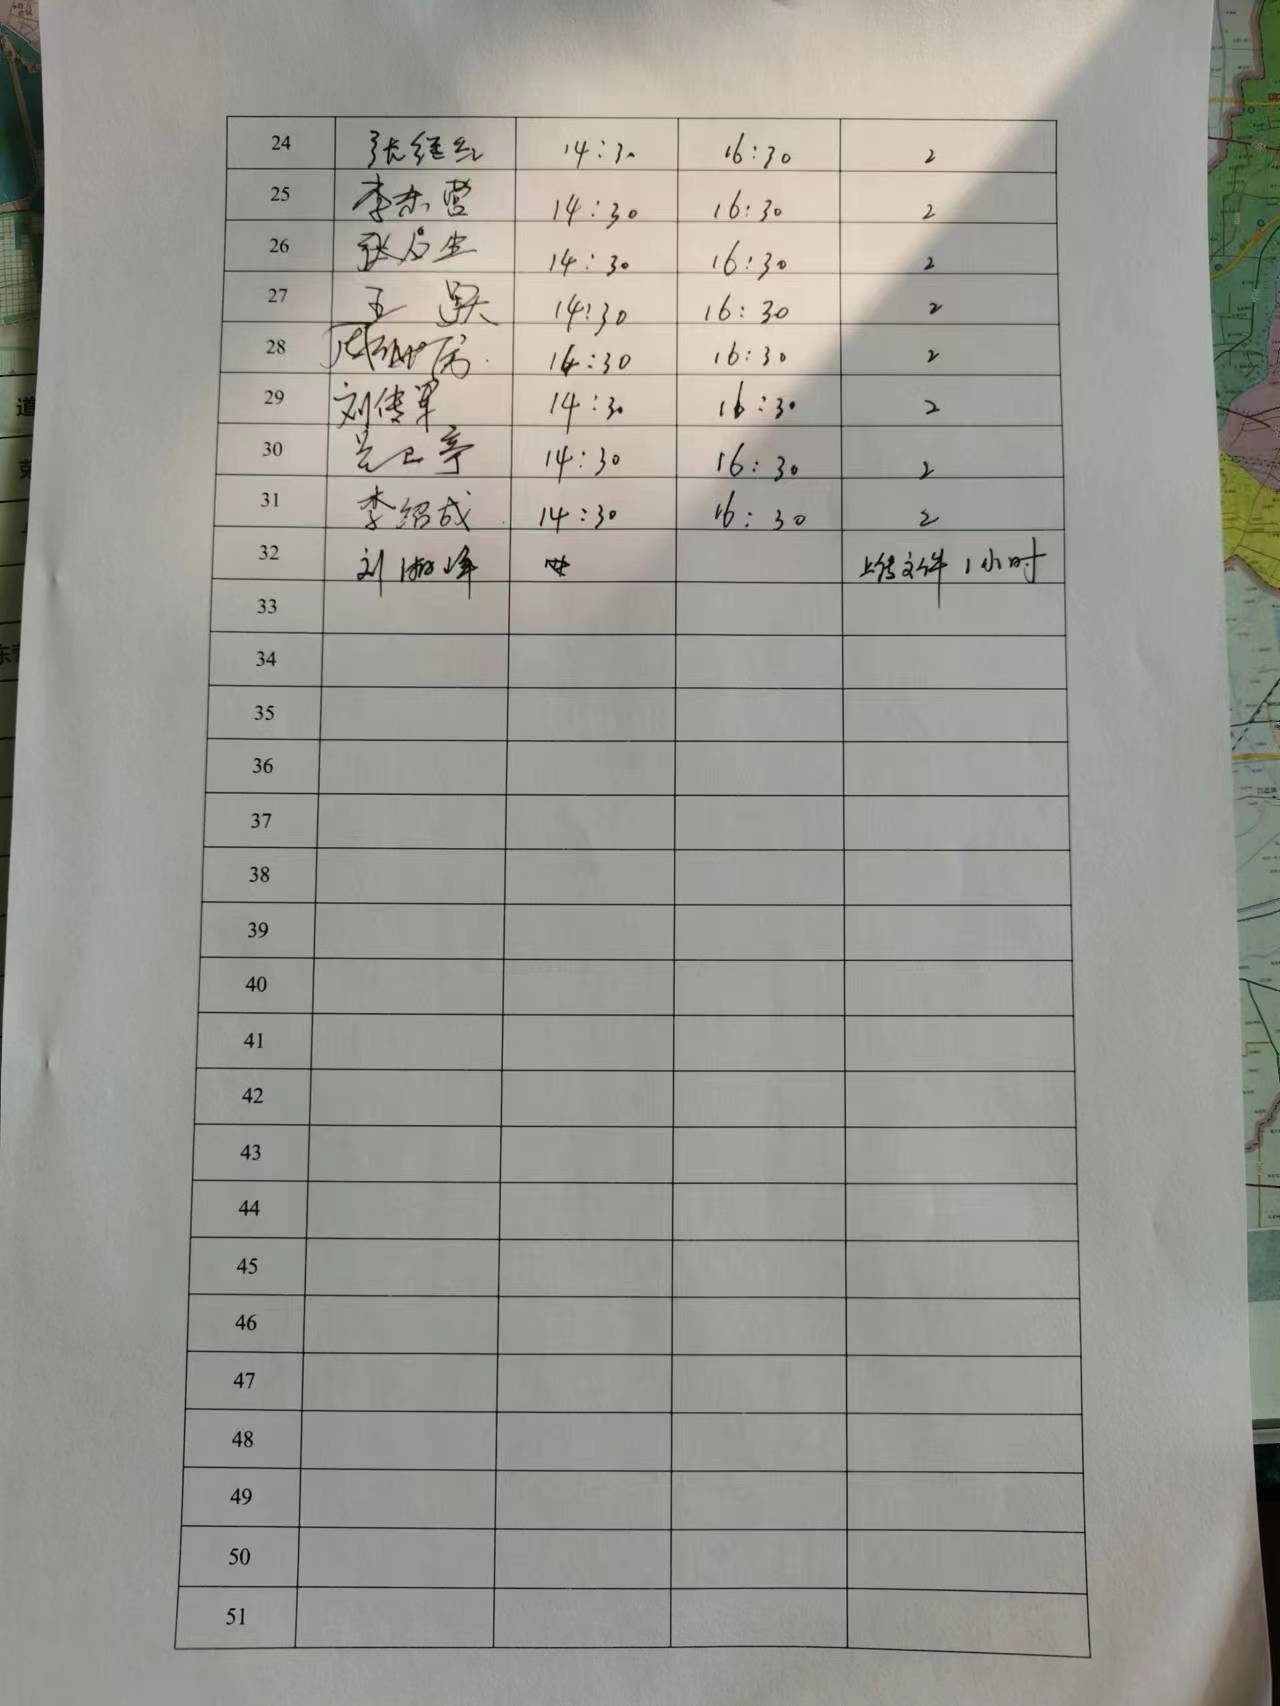 24 张继红 14:30 16:30 2
25 李东营 14:30 16:30 2
26 14:30 16:30 2
27 王 14:30 16:30 2
28 14:30 16:30 2
29 刘传军 14:30 16:30 2
30 14:30 16:30 2
31 李绍成 14:30 16:30 2
32 刘淑峰 上传文件1小时
33
34
35
36
37
38
39
40
41
42
43
44
45
46
47
48
49
50
51